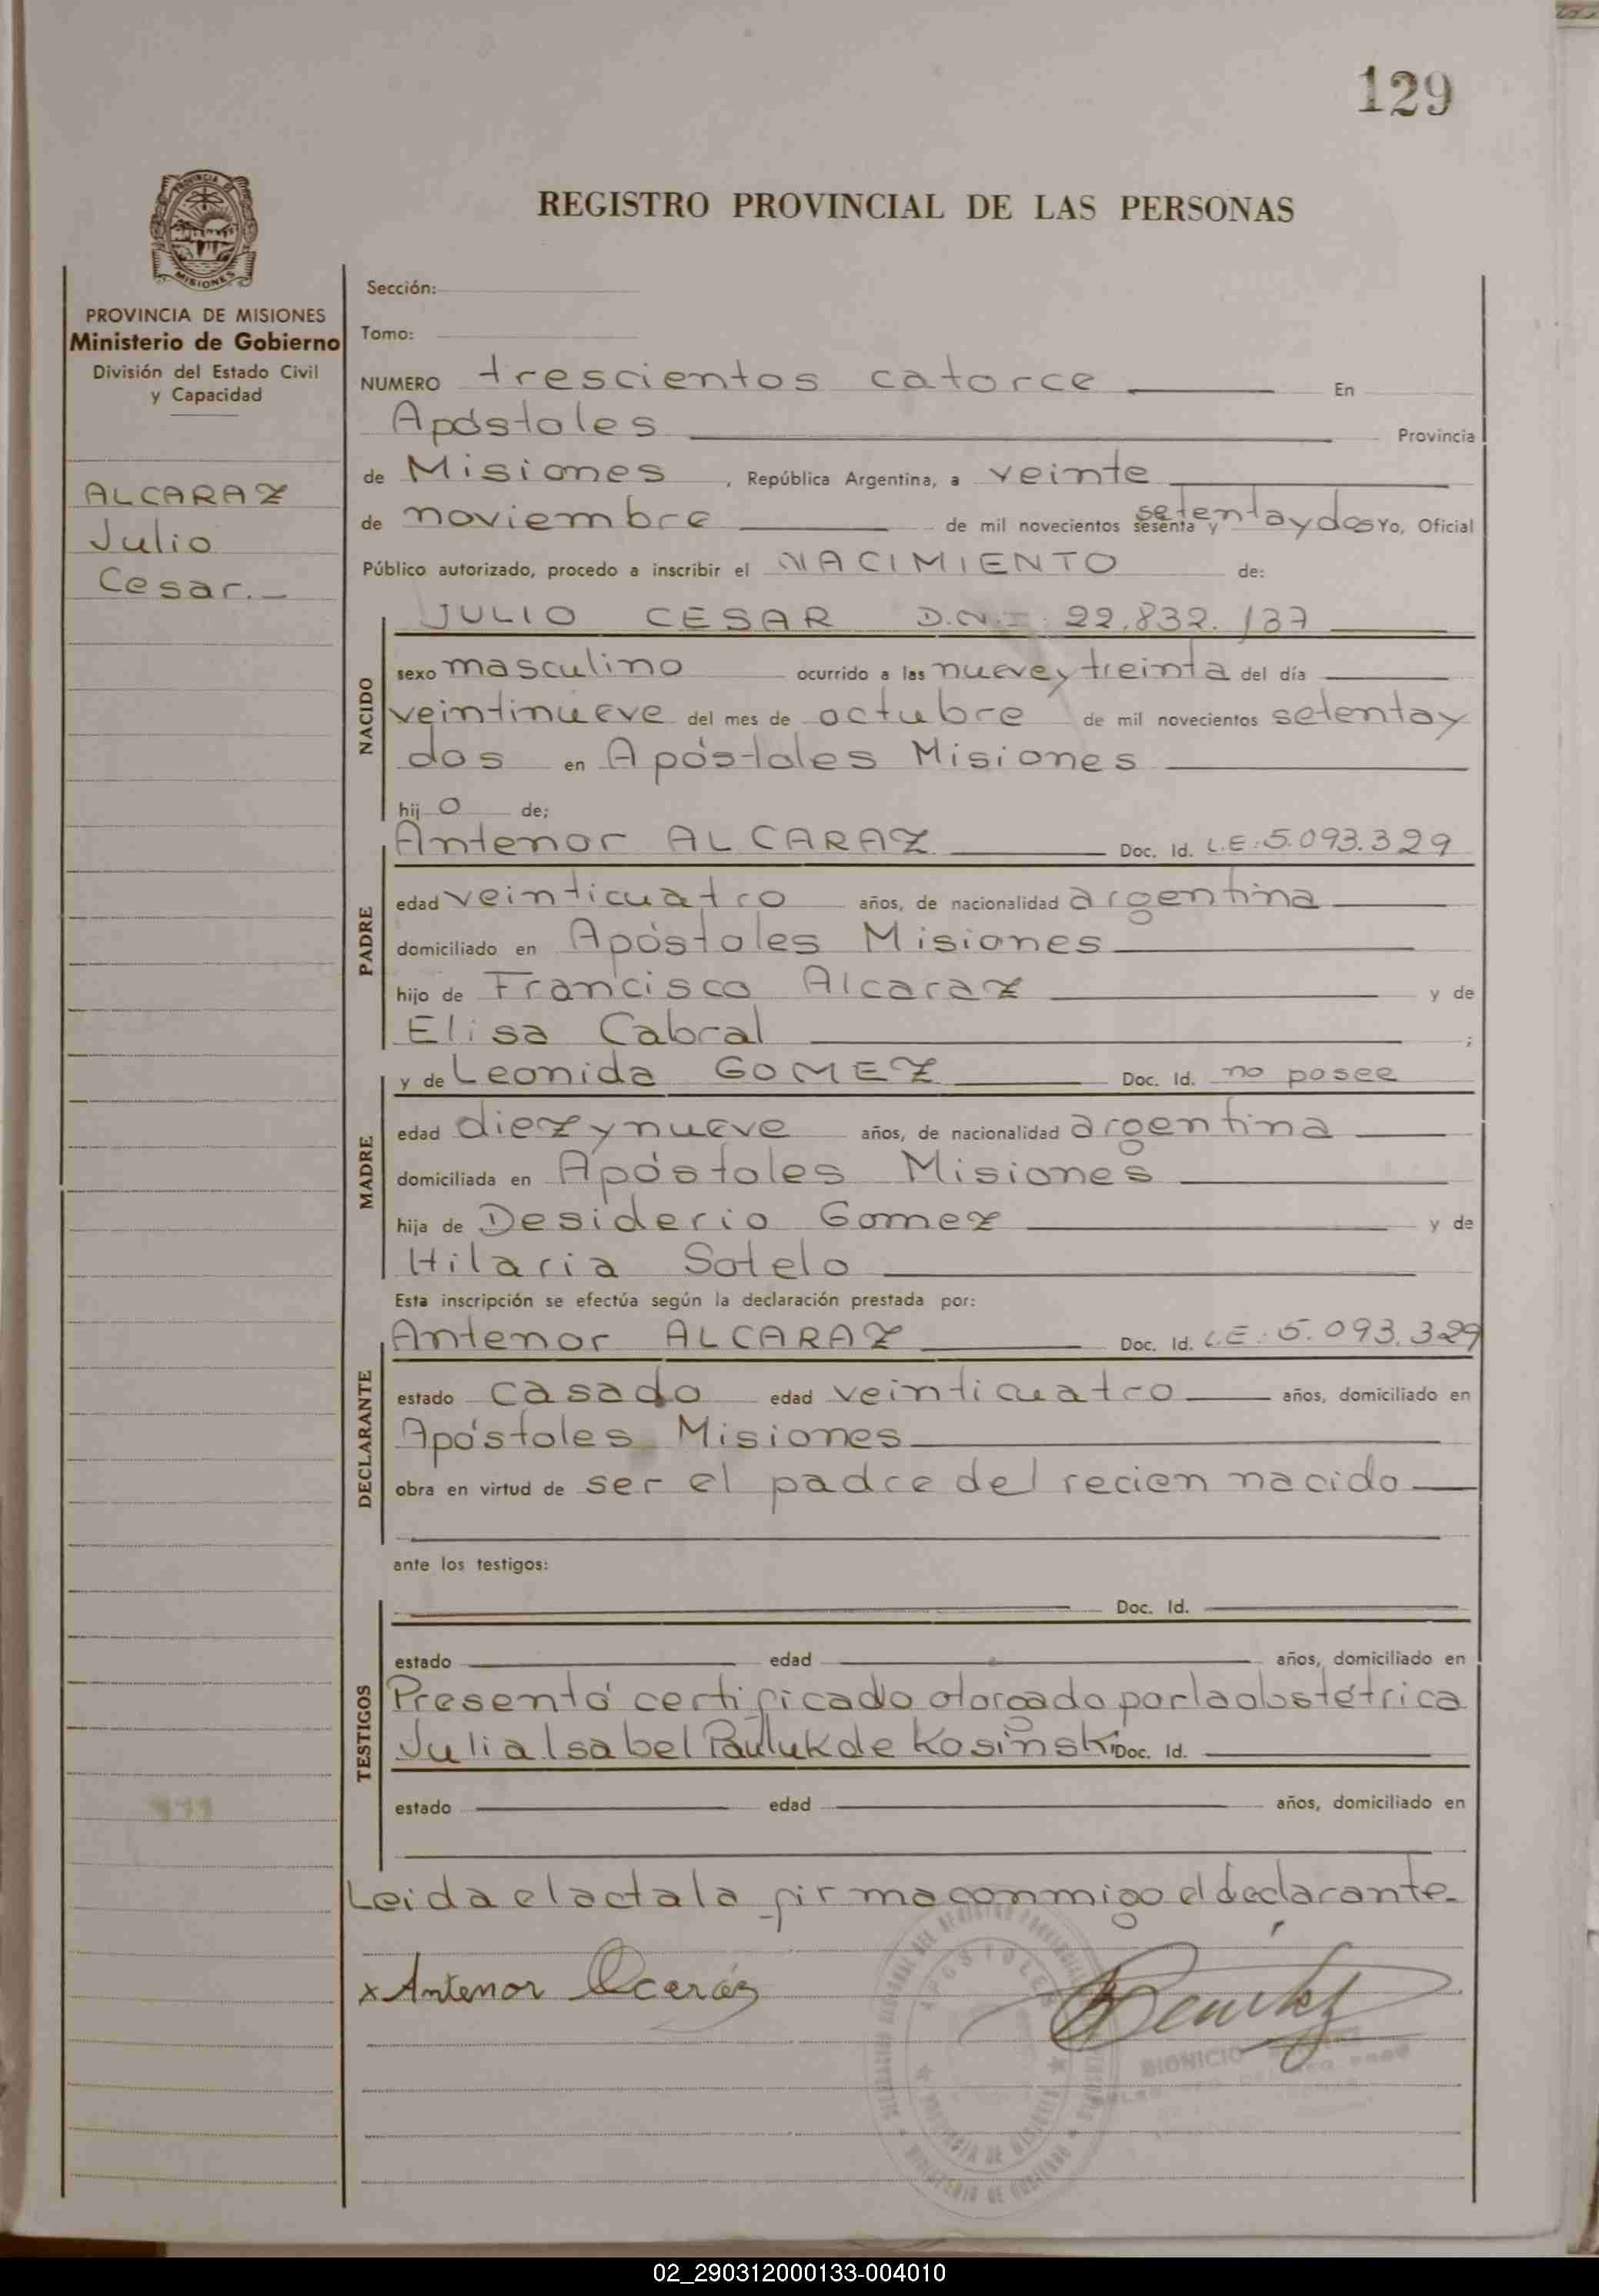 129
PROVINCIA DE
MISIONES
REGISTRO PROVINCIAL DE LAS PERSONAS
PROVINCIA DE MISIONES
Ministerio de Gobierno
División del Estado Civil
y Capacidad
ALCARAZ
Julio
Cesar.-
Sección:
Tomo:
NUMERO trescientos catorce En
Apóstoles Provincia
de Misiones, República Argentina, a veinte
de noviembre de mil novecientos sesenta y setentaydos Yo, Oficial
Público autorizado, procedo a inscribir el NACIMIENTO de:
NACIDO
JULIO CESAR D.N.I. 22.832.137
sexo masculino ocurrido a las nueve y treinta del día
veintinueve del mes de octubre de mil novecientos setenta y
dos en Apóstoles Misiones
hijo de;
PADRE
Antenor ALCARAZ Doc. Id. L.E. 5.093.329
edad veinticuatro años, de nacionalidad argentina
domiciliado en Apóstoles Misiones
hijo de Francisco Alcaraz y de
Elisa Cabral ;
MADRE
y de Leonida GOMEZ Doc. Id. no posee
edad diez y nueve años, de nacionalidad argentina
domiciliada en Apóstoles Misiones
hija de Desiderio Gomez y de
Hilaria Sotelo
Esta inscripción se efectúa según la declaración prestada por:
DECLARANTE
Antenor ALCARAZ Doc. Id. L.E. 5.093.329
estado casado edad veinticuatro años, domiciliado en
Apóstoles Misiones
obra en virtud de ser el padre del recien nacido
ante los testigos:
TESTIGOS
Doc. Id.
estado edad años, domiciliado en
Presentó certificado otorgado por la obstétrica
Julia Isabel Pauluk de Kosinski Doc. Id.
estado edad años, domiciliado en
Leida el acta la firma conmigo el declarante.
x Antenor Oceráz
Benitez
APOSTOLES
PROVINCIA DE MISIONES
MINISTERIO DE GOBIERNO
DIONICIO
02_290312000133-004010